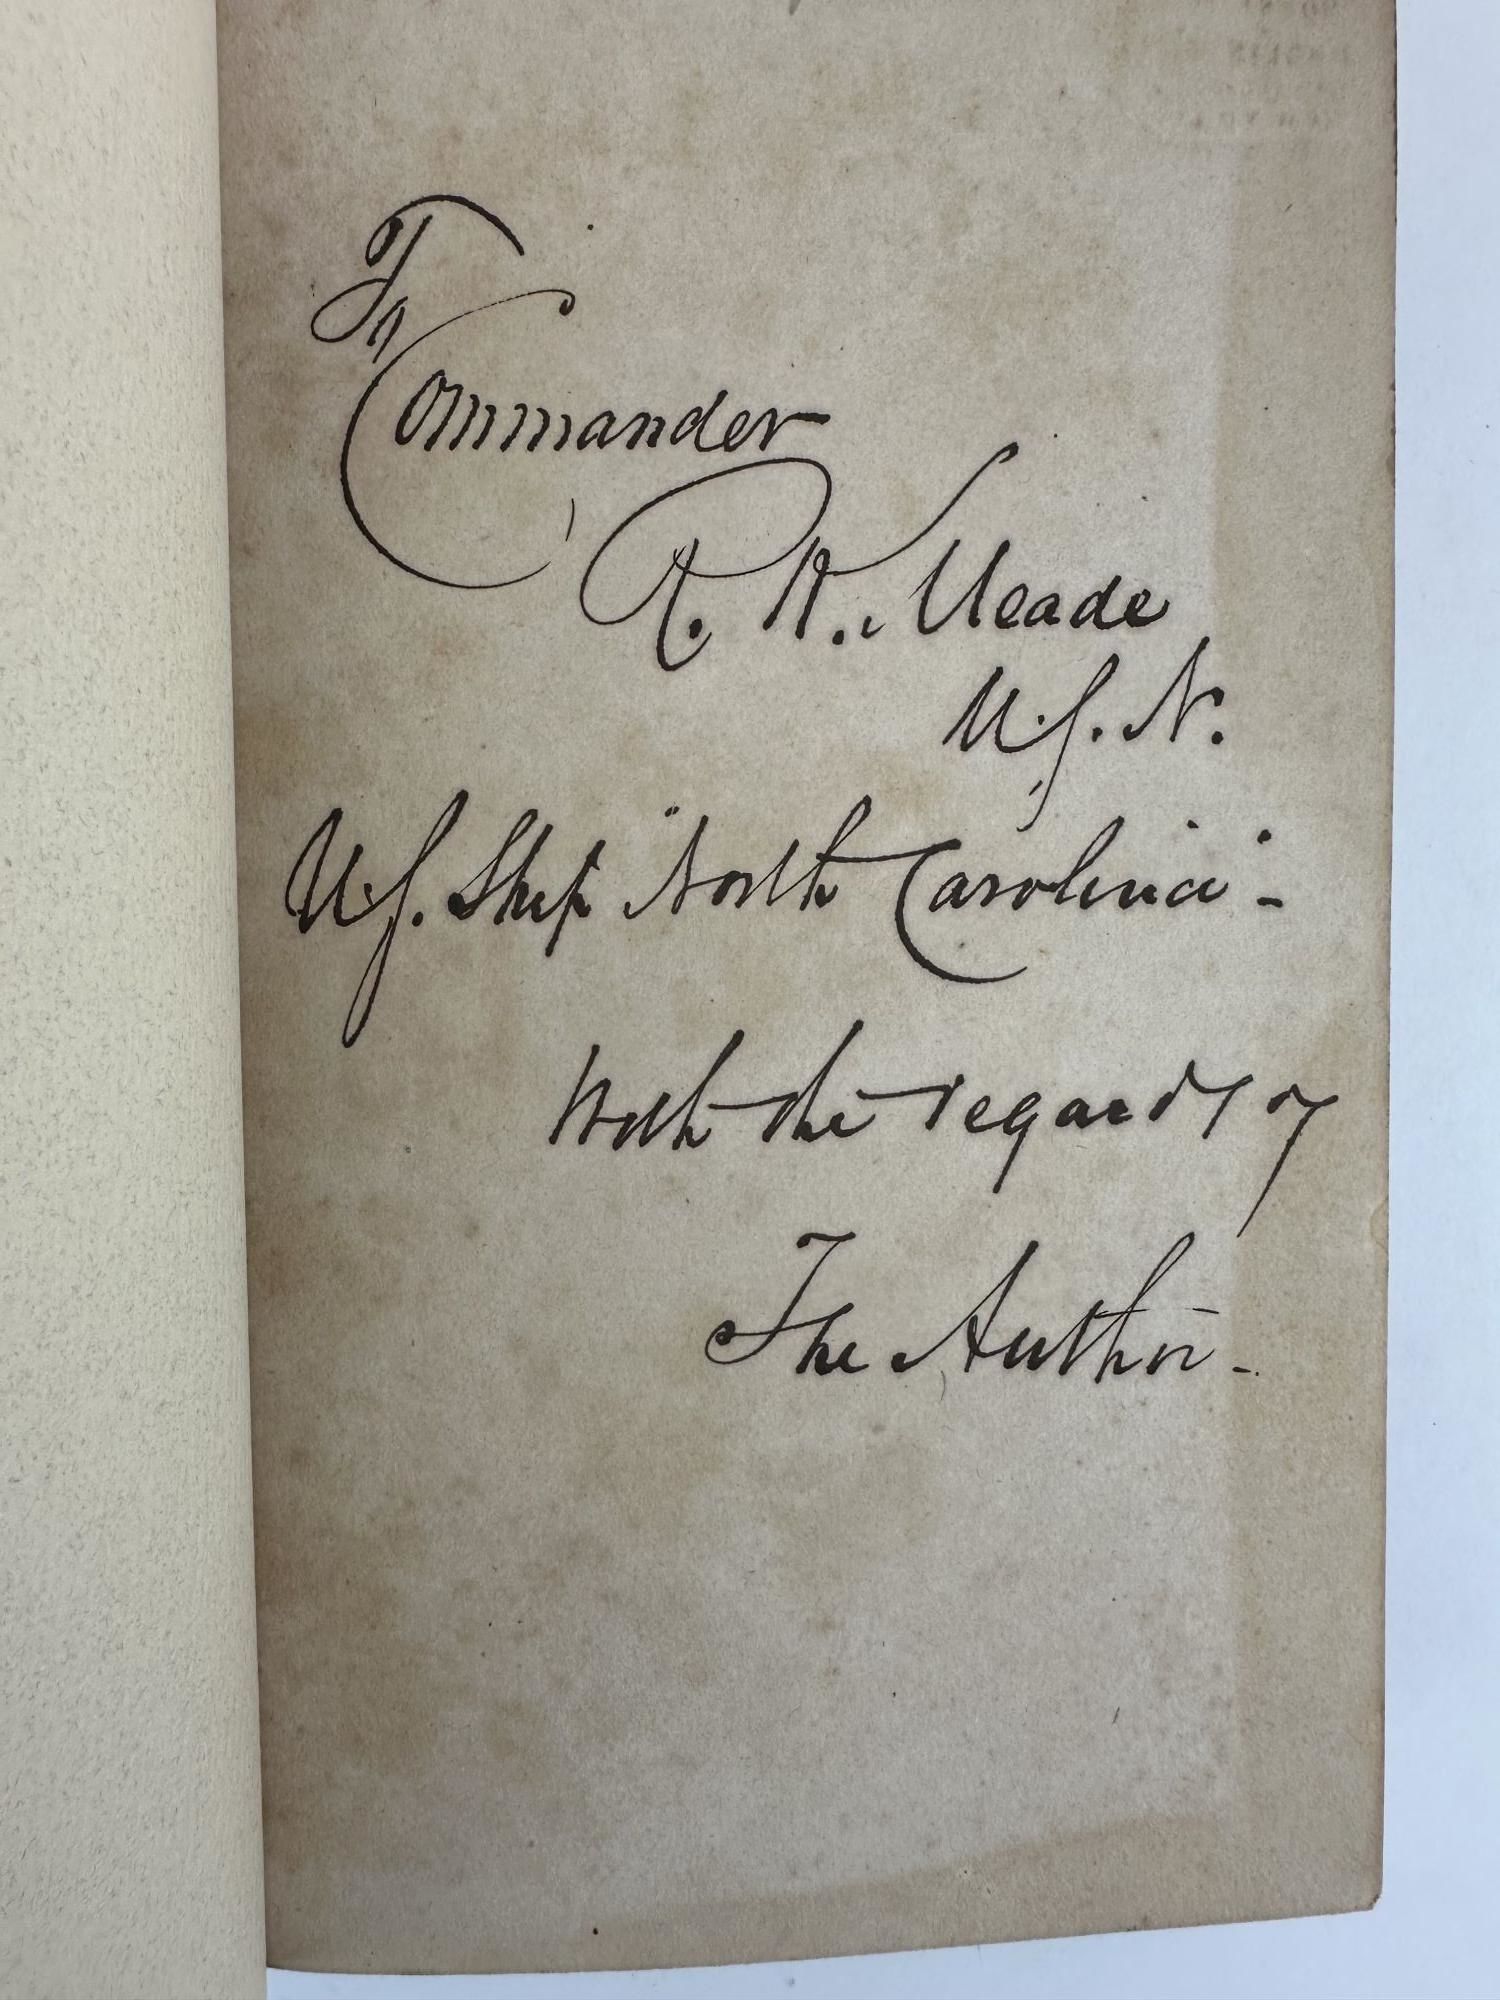 To
Commander
R. W. Meade
U.S.N.
U.S. Ship "North Carolina" -
With the regards of
The Author -